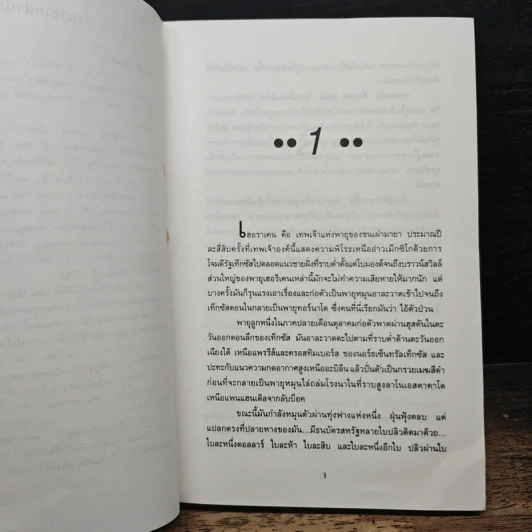 •• 1 ••
เฮอราเคน คือ เทพเจ้าแห่งพายุของชนเผ่ามายา ประมาณปี
ละสี่สิบครั้งที่เทพเจ้าองค์นี้แสดงความพิโรธเหนืออ่าวเม็กซิโกด้วยการ
โจมตีรัฐเท็กซัสไปตลอดแนวชายฝั่งที่ราบต่ำตั้งแต่โบมองต์จนถึงบราวน์สวิลล์
ส่วนใหญ่ของพายุเฮอริเคนเหล่านี้มักจะไม่ทำความเสียหายให้มากนัก แต่
บางครั้งมันก็รุนแรงเอาเรื่องและก่อตัวเป็นพายุหมุนอาละวาดเข้าไปจนถึง
เท็กซัสตอนในกลายเป็นพายุทอร์นาโด ซึ่งคนที่นี่เรียกมันว่า ไอ้ตัวป่วน
พายุลูกหนึ่งในภาคปลายเดือนตุลาคมก่อตัวพาดผ่านฮุสตันในตะ
วันออกตอนลึกของเท็กซัส มันอาละวาดตะไปตามที่ราบต่ำด้านตะวันออก
เฉียงใต้ เหนือแพรรีส์และครอสทิมเบอร์ส ของนอร์ธเซ็นทรัลเท็กซัส และ
ปะทะกับแนวความกดอากาศสูงเหนืออะบิลีน แล้วปั่นตัวเป็นกรวยเมฆสีดำ
ก่อนที่จะกลายเป็นพายุหมุนไล่ถล่มโรงนาในที่ราบสูงลาโนเอสตาคาโด
เหนือแพนแฮนเดิลจากลับบ็อค
ขณะนี้มันกำลังหมุนตัวผ่านทุ่งฟางแห่งหนึ่ง ฝุ่นฟุ้งตลบ แต่
แปลกตรงที่ปลายหางของมัน...มีธนบัตรสหรัฐหลายใบปลิวติดมาด้วย...
ใบละหนึ่งดอลลาร์ ใบละห้า ใบละสิบ และใบละหนึ่งอีกใบ ปลิวผ่านใบ
1